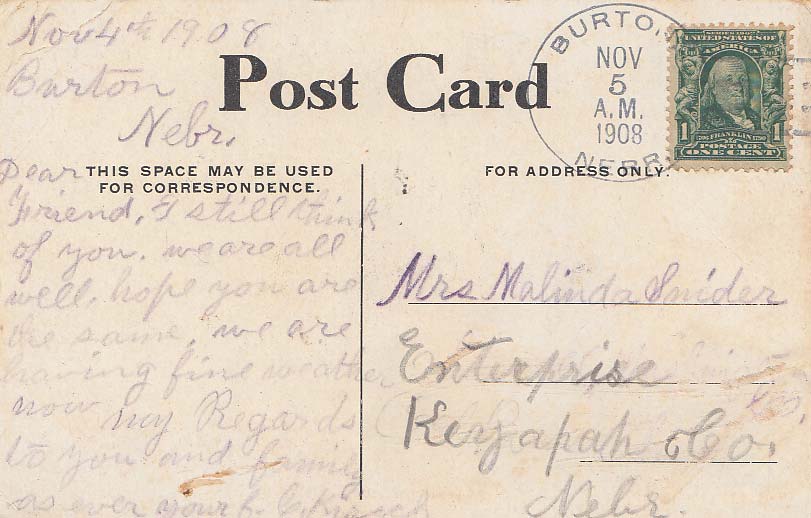 Nov 4th 1908
Burton
Nebr.
Post Card
THIS SPACE MAY BE USED
FOR CORRESPONDENCE.
Dear
Friend, I still think
of you. we are all
well, hope you are
the same, we are
having fine weather
now my Regards
to you and family
as ever your
BURTON
NOV
5
A.M.
1908
NEBR.
SERIES 1902
UNITED STATES OF
AMERICA
1 FRANKLIN 1
POSTAGE
ONE CENT
FOR ADDRESS ONLY.
Mrs Malinda Snider
Enterprise
Keyapah Co.
Nebr.